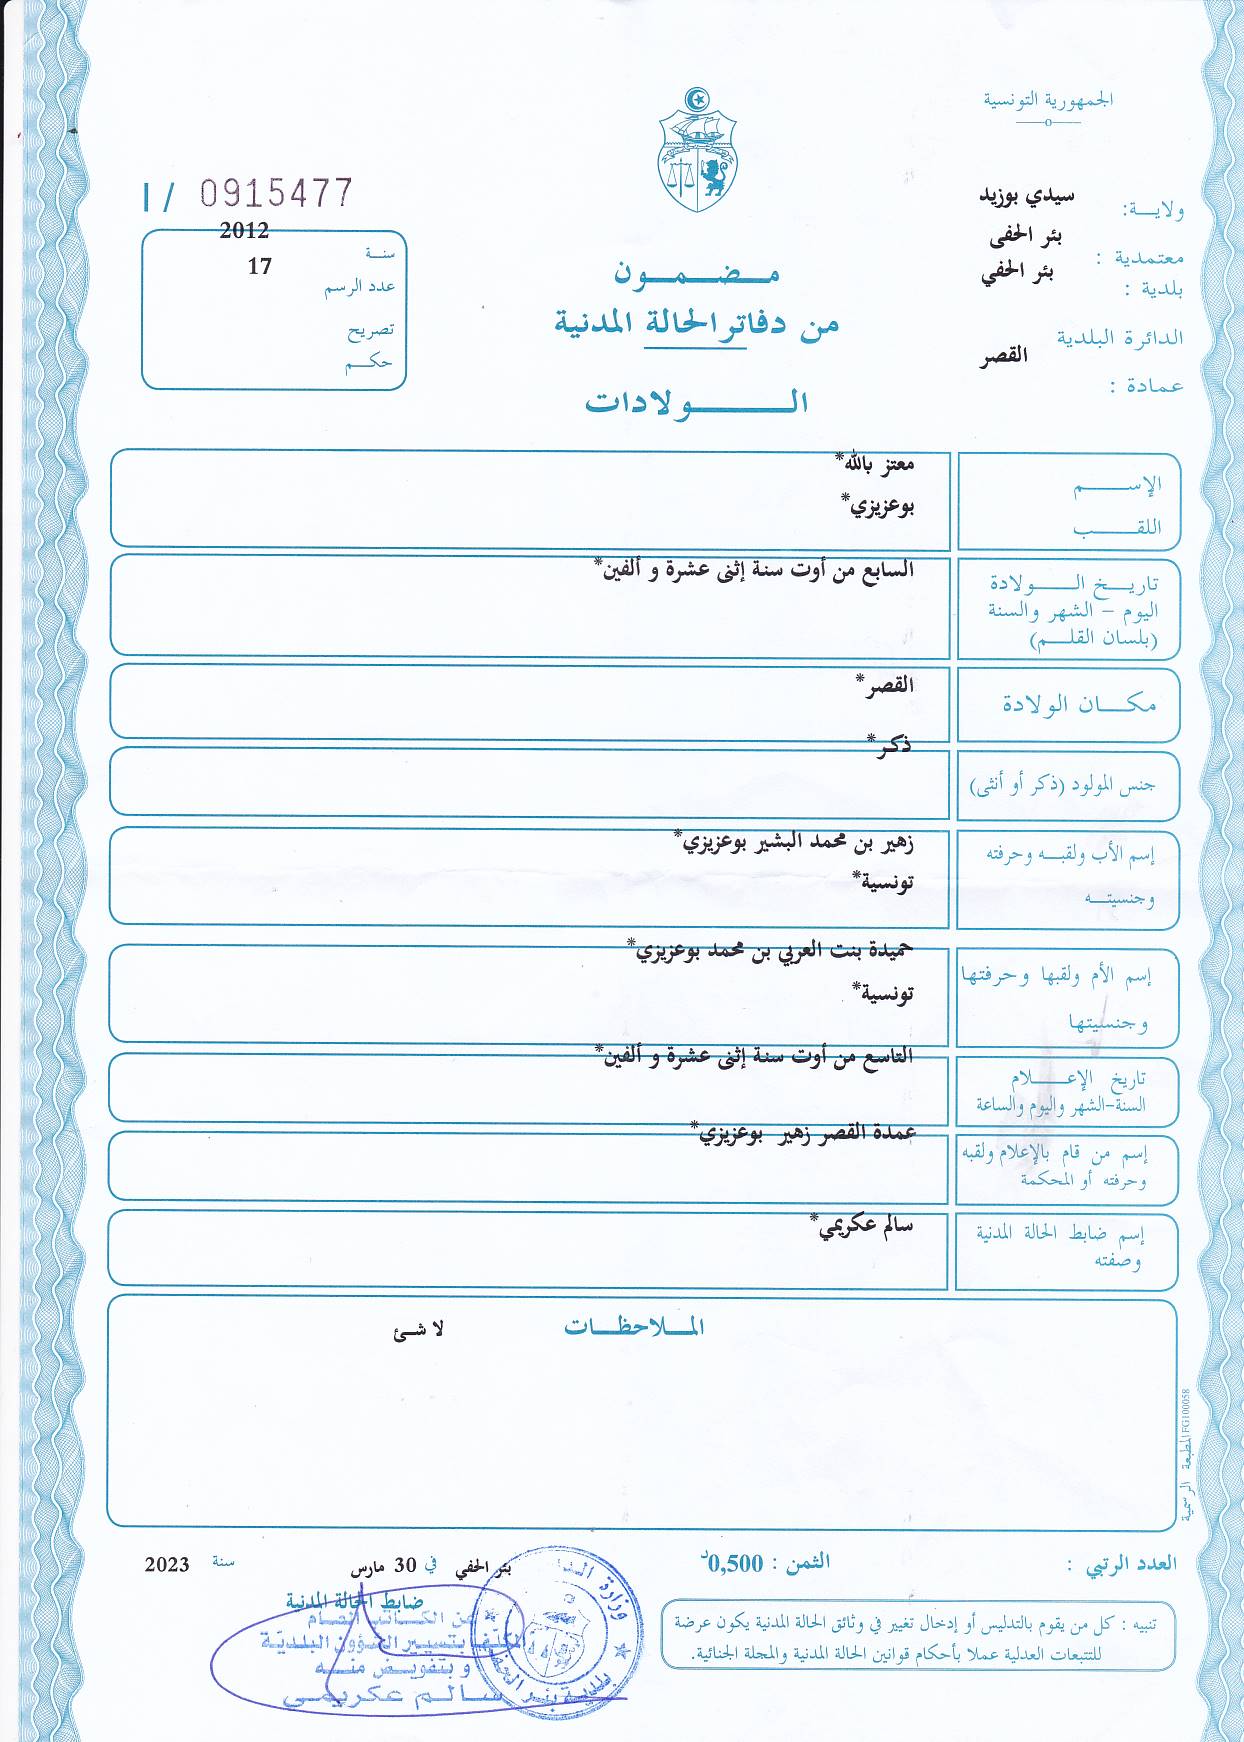 الجمهورية التونسية
ولايـــة: سيدي بوزيد
معتمدية : بئر الحفى
بلدية : بئر الحفي
الدائرة البلدية
عمادة : القصر
I / 0915477
سنــة 2012
عدد الرسم 17
تصريح
حكـــم
مـــضـــمـــون
من دفاتر الحالة المدنية
الـــــــولادات
الإســـــــم معتز بالله*
اللقـــــــب بوعزيزي*
تاريـــخ الـــــولادة
اليوم – الشهر والسنة
(بلسان القلـــم)
السابع من أوت سنة إثنى عشرة و ألفين*
مكـــان الولادة القصر*
جنس المولود (ذكر أو أنثى) ذكر*
إسم الأب ولقبـــه وحرفته
وجنسيتـــه
زهير بن محمد البشير بوعزيزي*
تونسية*
إسم الأم ولقبها وحرفتها
وجنسيتها
حميدة بنت العربي بن محمد بوعزيزي*
تونسية*
تاريخ الإعـــــلام
السنة-الشهر واليوم والساعة
التاسع من أوت سنة إثنى عشرة و ألفين*
إسم من قام بالإعلام ولقبه
وحرفته أو المحكمة
عمدة القصر زهير بوعزيزي*
إسم ضابط الحالة المدنية
وصفته
سالم عكريمي*
المـــلاحظـــات
لا شئ
المطبعة الرسمية FG100058
العدد الرتبي :
الثمن : 0,500د
بئر الحفي في 30 مارس سنة 2023
ضابط الحالة المدنية
عن الكاتب العام
المكلف بتسيير الشؤون البلديّة
وبتفويض منه
سالم عكريمي
بلدية بئر الحفي
تنبيه : كل من يقوم بالتدليس أو إدخال تغيير في وثائق الحالة المدنية يكون عرضة
للتتبعات العدلية عملا بأحكام قوانين الحالة المدنية والمجلة الجنائية.